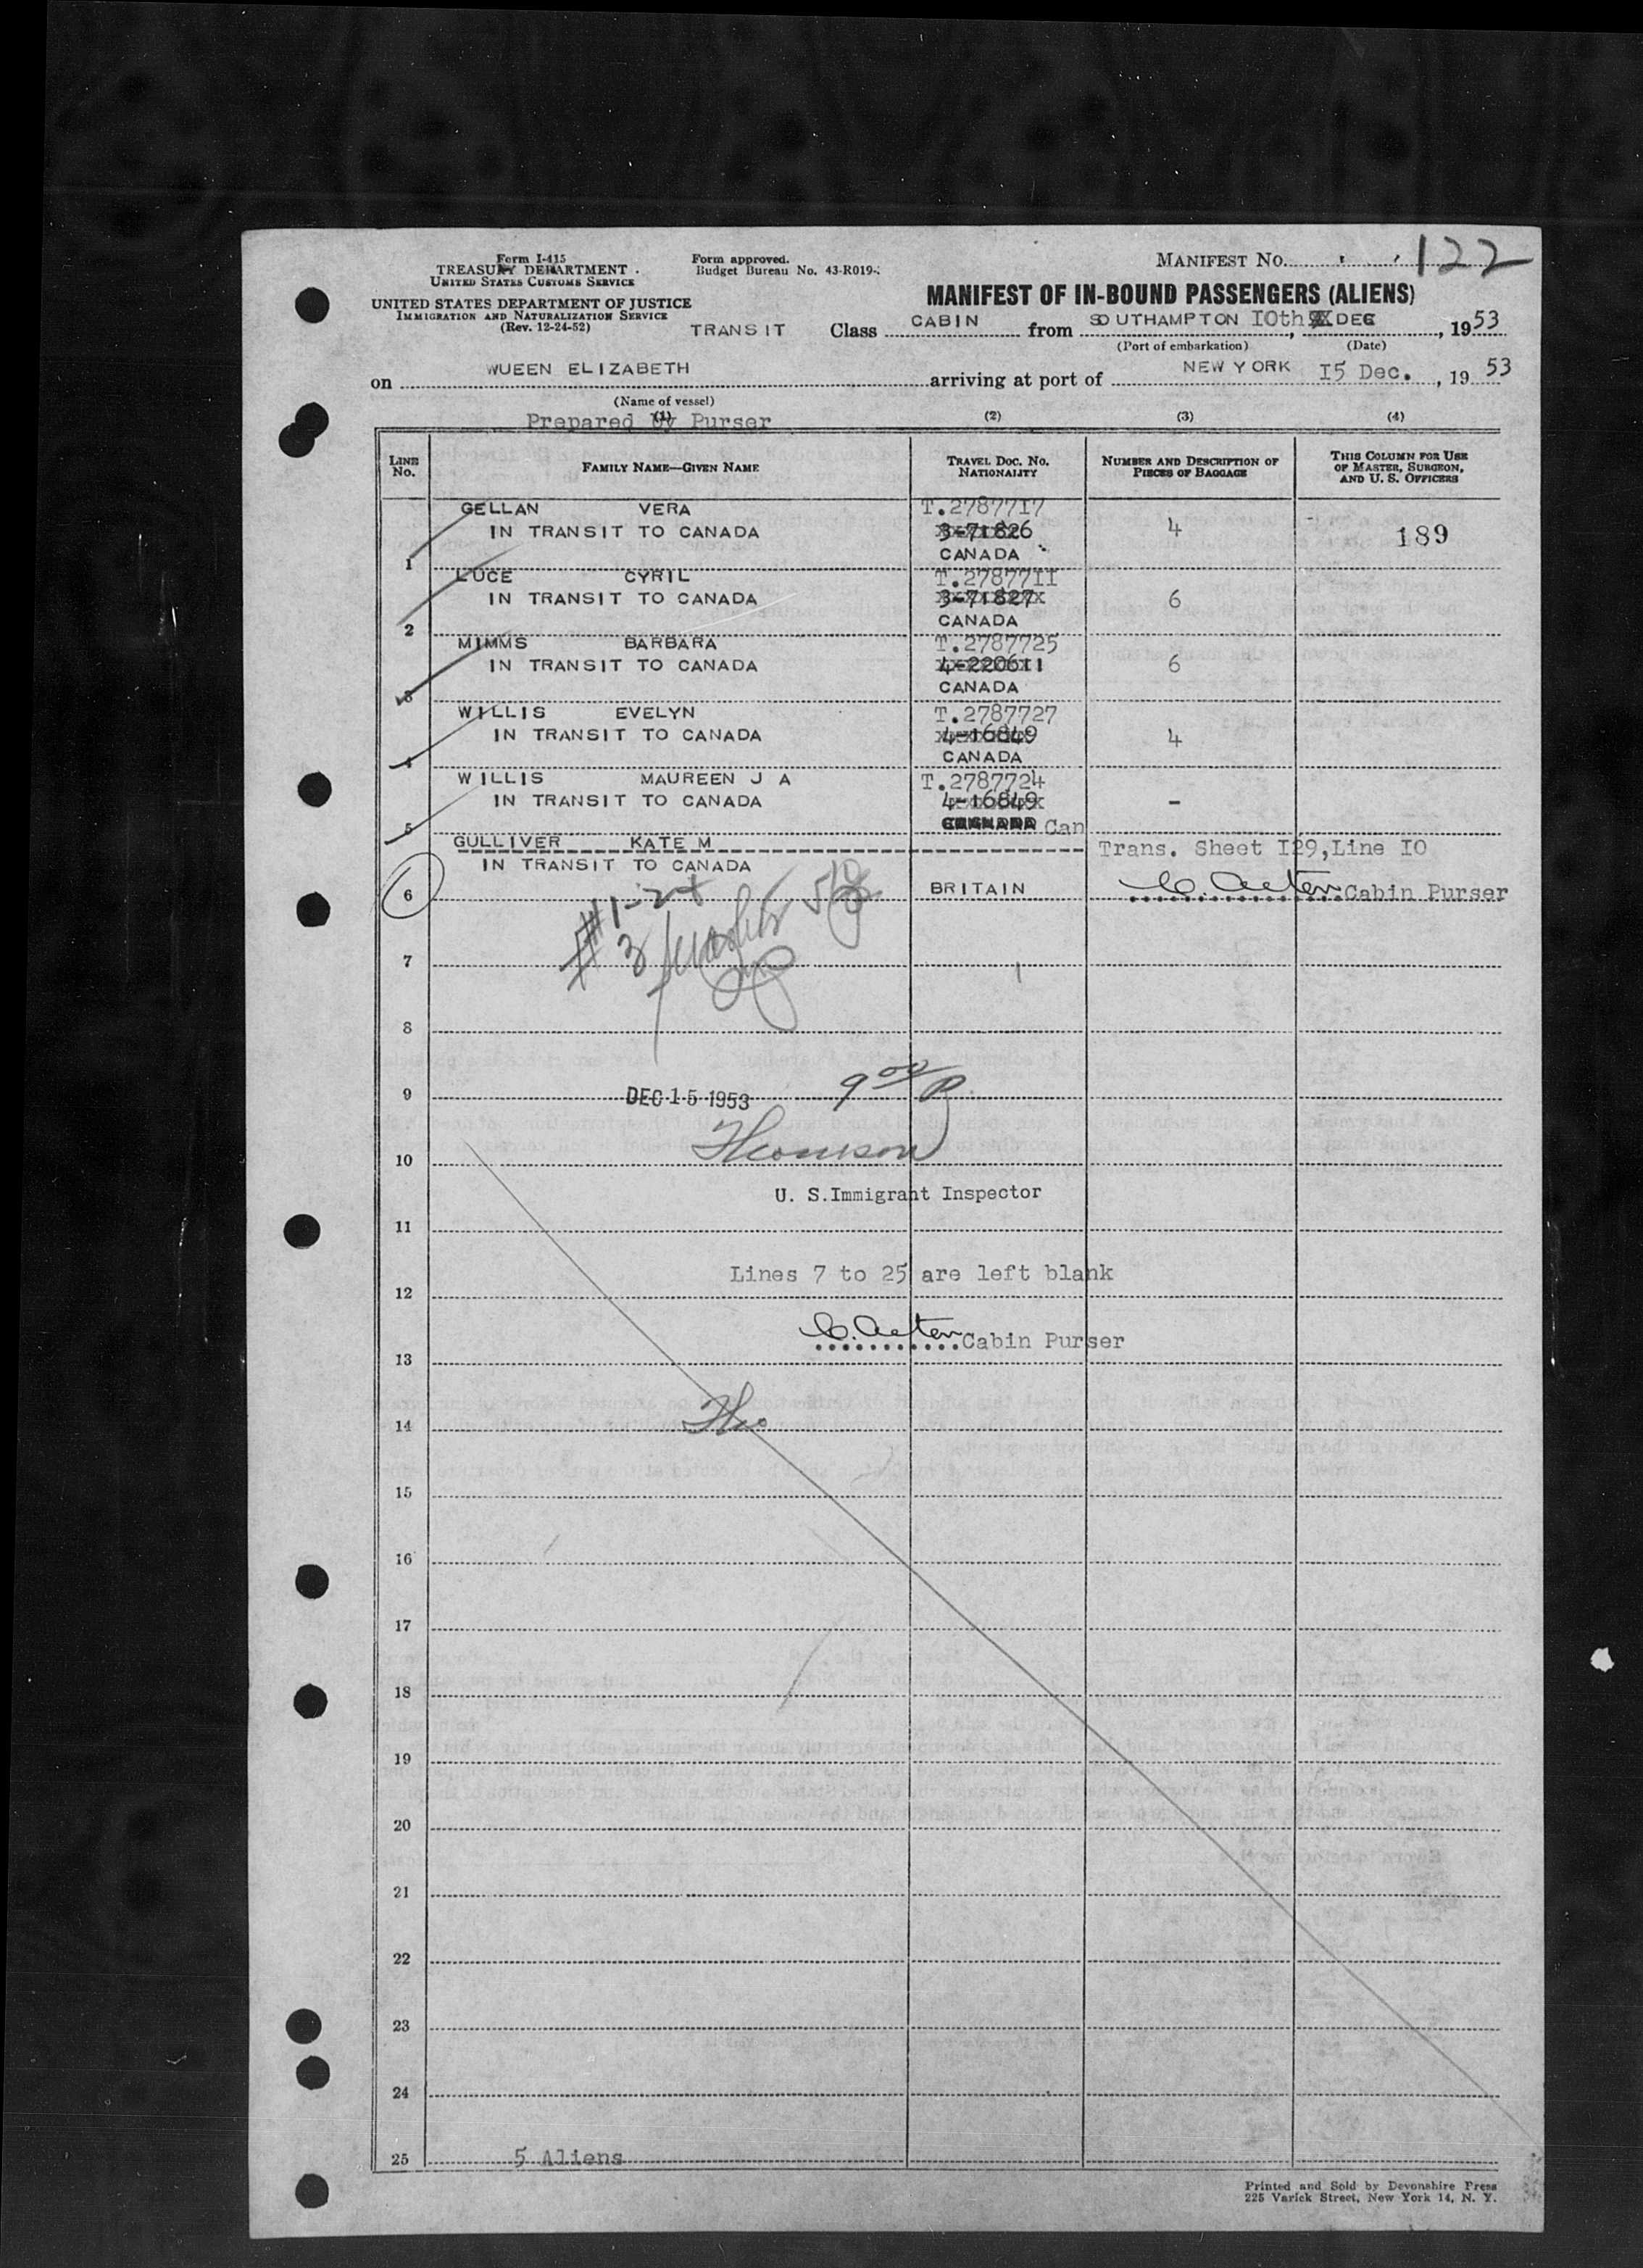 Form I-415
TREASURY DEPARTMENT
UNITED STATES CUSTOMS SERVICE
UNITED STATES DEPARTMENT OF JUSTICE
IMMIGRATION AND NATURALIZATION SERVICE
(Rev. 12-24-52)
Form approved.
Budget Bureau No. 43-R019-
MANIFEST NO. 122
MANIFEST OF IN-BOUND PASSENGERS (ALIENS)
TRANSIT Class CABIN from SOUTHAMPTON 10th DEC, 1953
(Port of embarkation) (Date)
on WUEEN ELIZABETH arriving at port of NEW YORK 15 Dec., 19 53
(Name of vessel)
Prepared by Purser
(1) (2) (3) (4)
LINE NO. FAMILY NAME—GIVEN NAME TRAVEL DOC. NO. NATIONALITY NUMBER AND DESCRIPTION OF PIECES OF BAGGAGE THIS COLUMN FOR USE OF MASTER, SURGEON, AND U. S. OFFICERS
GELLAN VERA T.2787717
IN TRANSIT TO CANADA 3-71826 4 189
1 CANADA
LUCE CYRIL T.2787711
IN TRANSIT TO CANADA 3-71827 6
2 CANADA
MIMMS BARBARA T.2787725
IN TRANSIT TO CANADA 4-220611 6
3 CANADA
WILLIS EVELYN T.2787727
IN TRANSIT TO CANADA 4-16849 4
4 CANADA
WILLIS MAUREEN J A T.2787724
IN TRANSIT TO CANADA 4-16849 -
5 Can
GULLIVER KATE M Trans. Sheet 129,Line 10
IN TRANSIT TO CANADA
6 BRITAIN C. Acton Cabin Purser
#1-2-4
# 3
7
8
9 DEC 15 1953 9 00 P.
Thomson
10
U. S.Immigrant Inspector
11
Lines 7 to 25 are left blank
12
C. Acton Cabin Purser
13
14 Tho
15
16
17
18
19
20
21
22
23
24
25 5 Aliens
Printed and Sold by Devonshire Press
225 Varick Street, New York 14, N. Y.